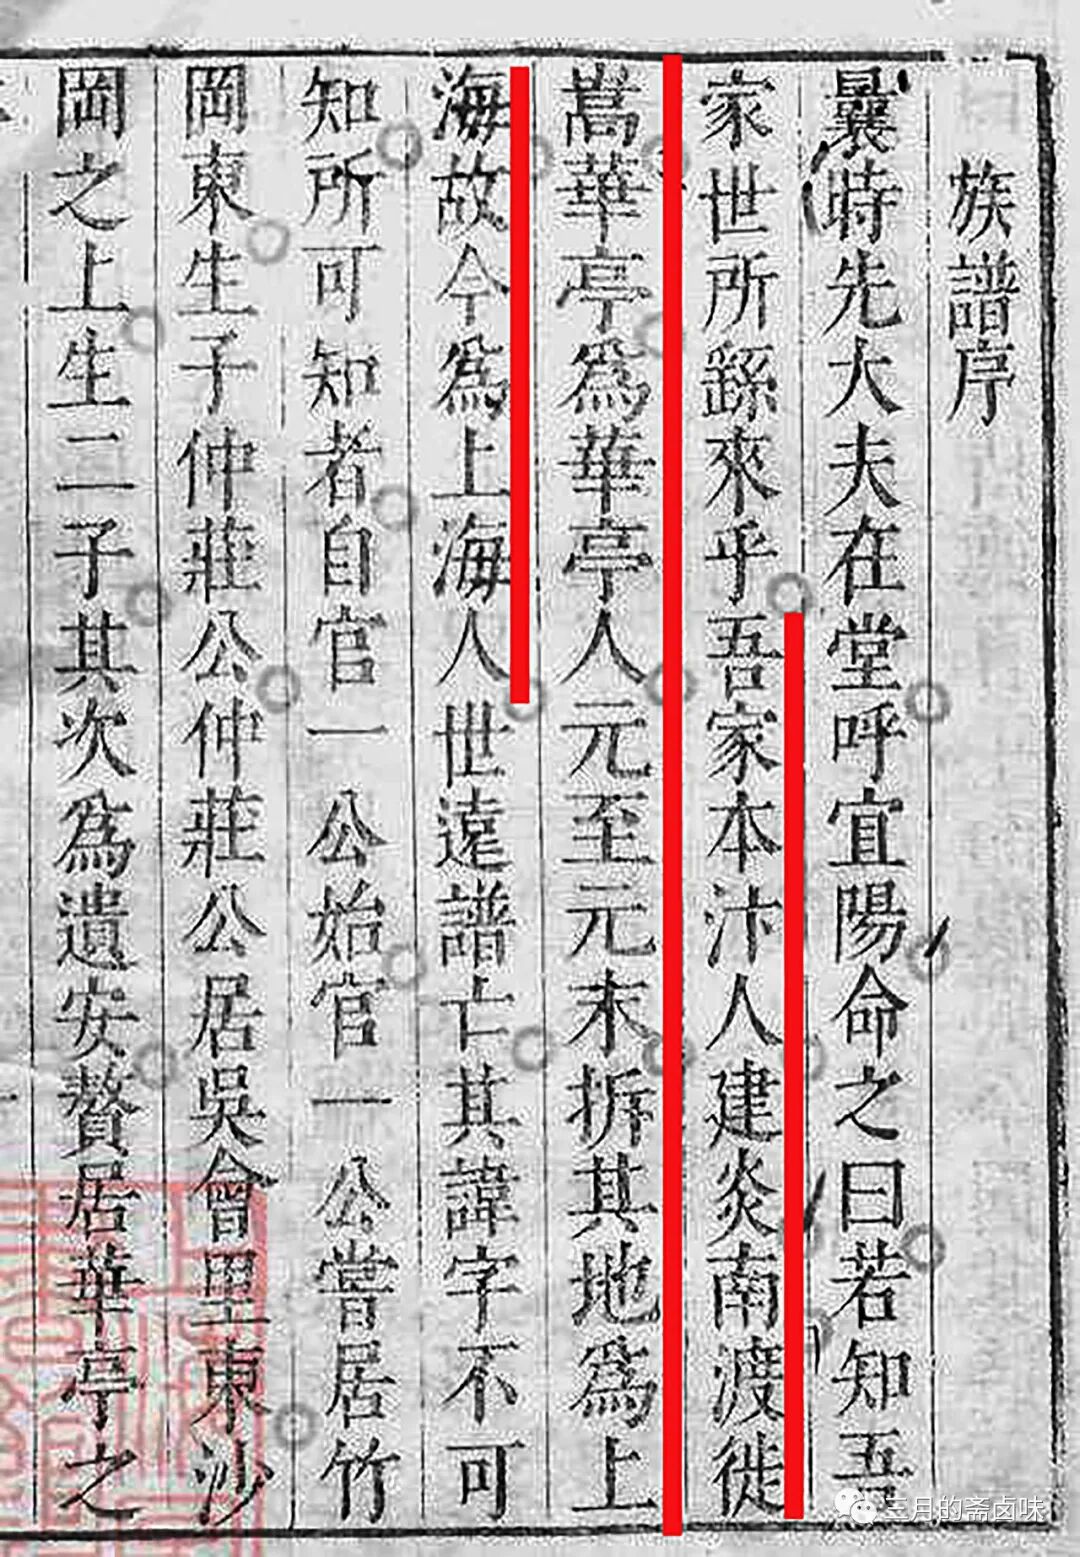 族譜序
曩時先大夫在堂呼宜陽命之曰若知吾
家世所繇來乎吾家本汴人建炎南渡徙
嵩華亭爲華亭人元至元末拆其地爲上
海故今爲上海人世遠譜亡其諱字不可
知所可知者自官一公始官一公嘗居竹
岡東生子仲莊公仲莊公居吳會里東沙
岡之上生二子其次爲遺安贅居華亭之
三月的斋卤味